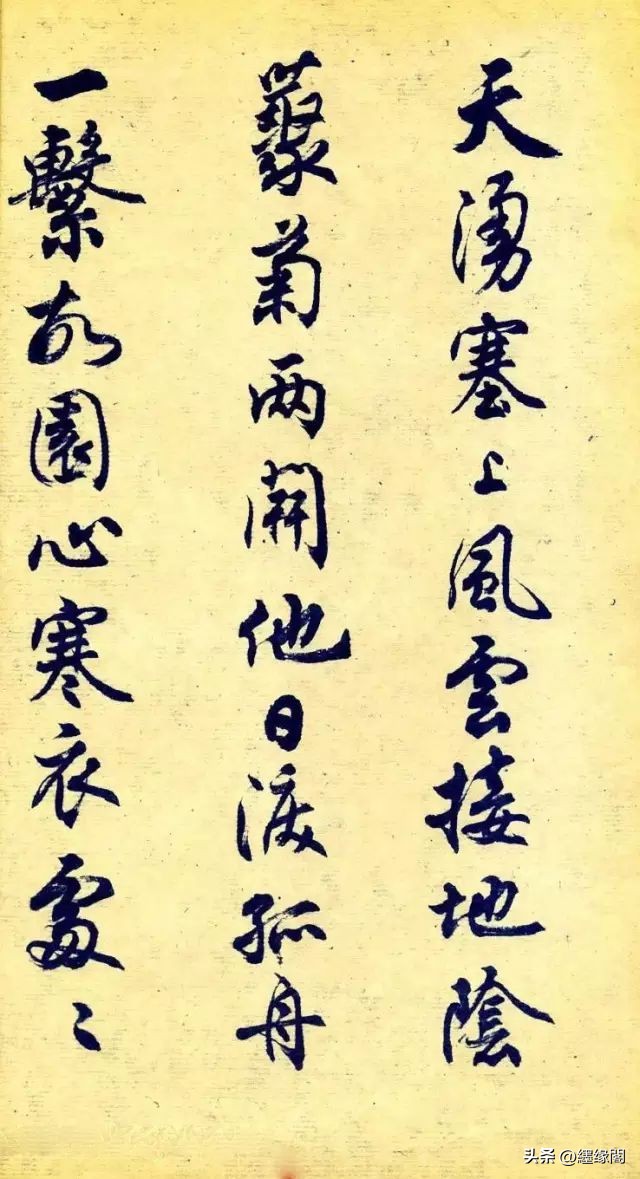 天湧塞上風雲接地陰
藂菊两開他日淚孤舟
一繫故園心寒衣處〻
头条 @缘閣